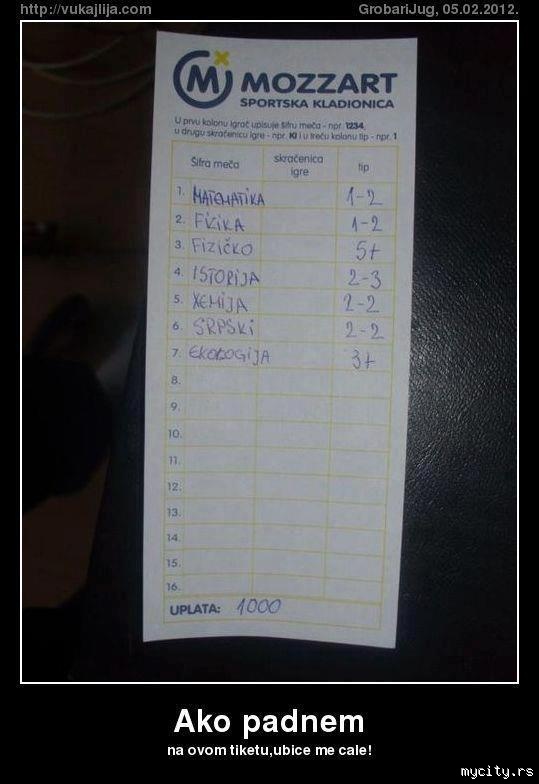 http://vukajlija.com GrobariJug, 05.02.2012.
MOZZART
SPORTSKA KLADIONICA
U prvu kolonu igrač upisuje šifru meča - npr. 1234,
u drugu skraćenicu igre - npr. KI i u treću kolonu tip - npr. 1
Šifra meča skraćenica igre tip
1. MATEMATIKA 1-2
2. FIZIKA 1-2
3. FIZIČKO 5+
4. ISTORIJA 2-3
5. XEMIJA 2-2
6. SRPSKI 2-2
7. EKOLOGIJA 3+
8.
9.
10.
11.
12.
13.
14.
15.
16.
UPLATA: 1000
Ako padnem
na ovom tiketu,ubice me cale!
mycity.rs